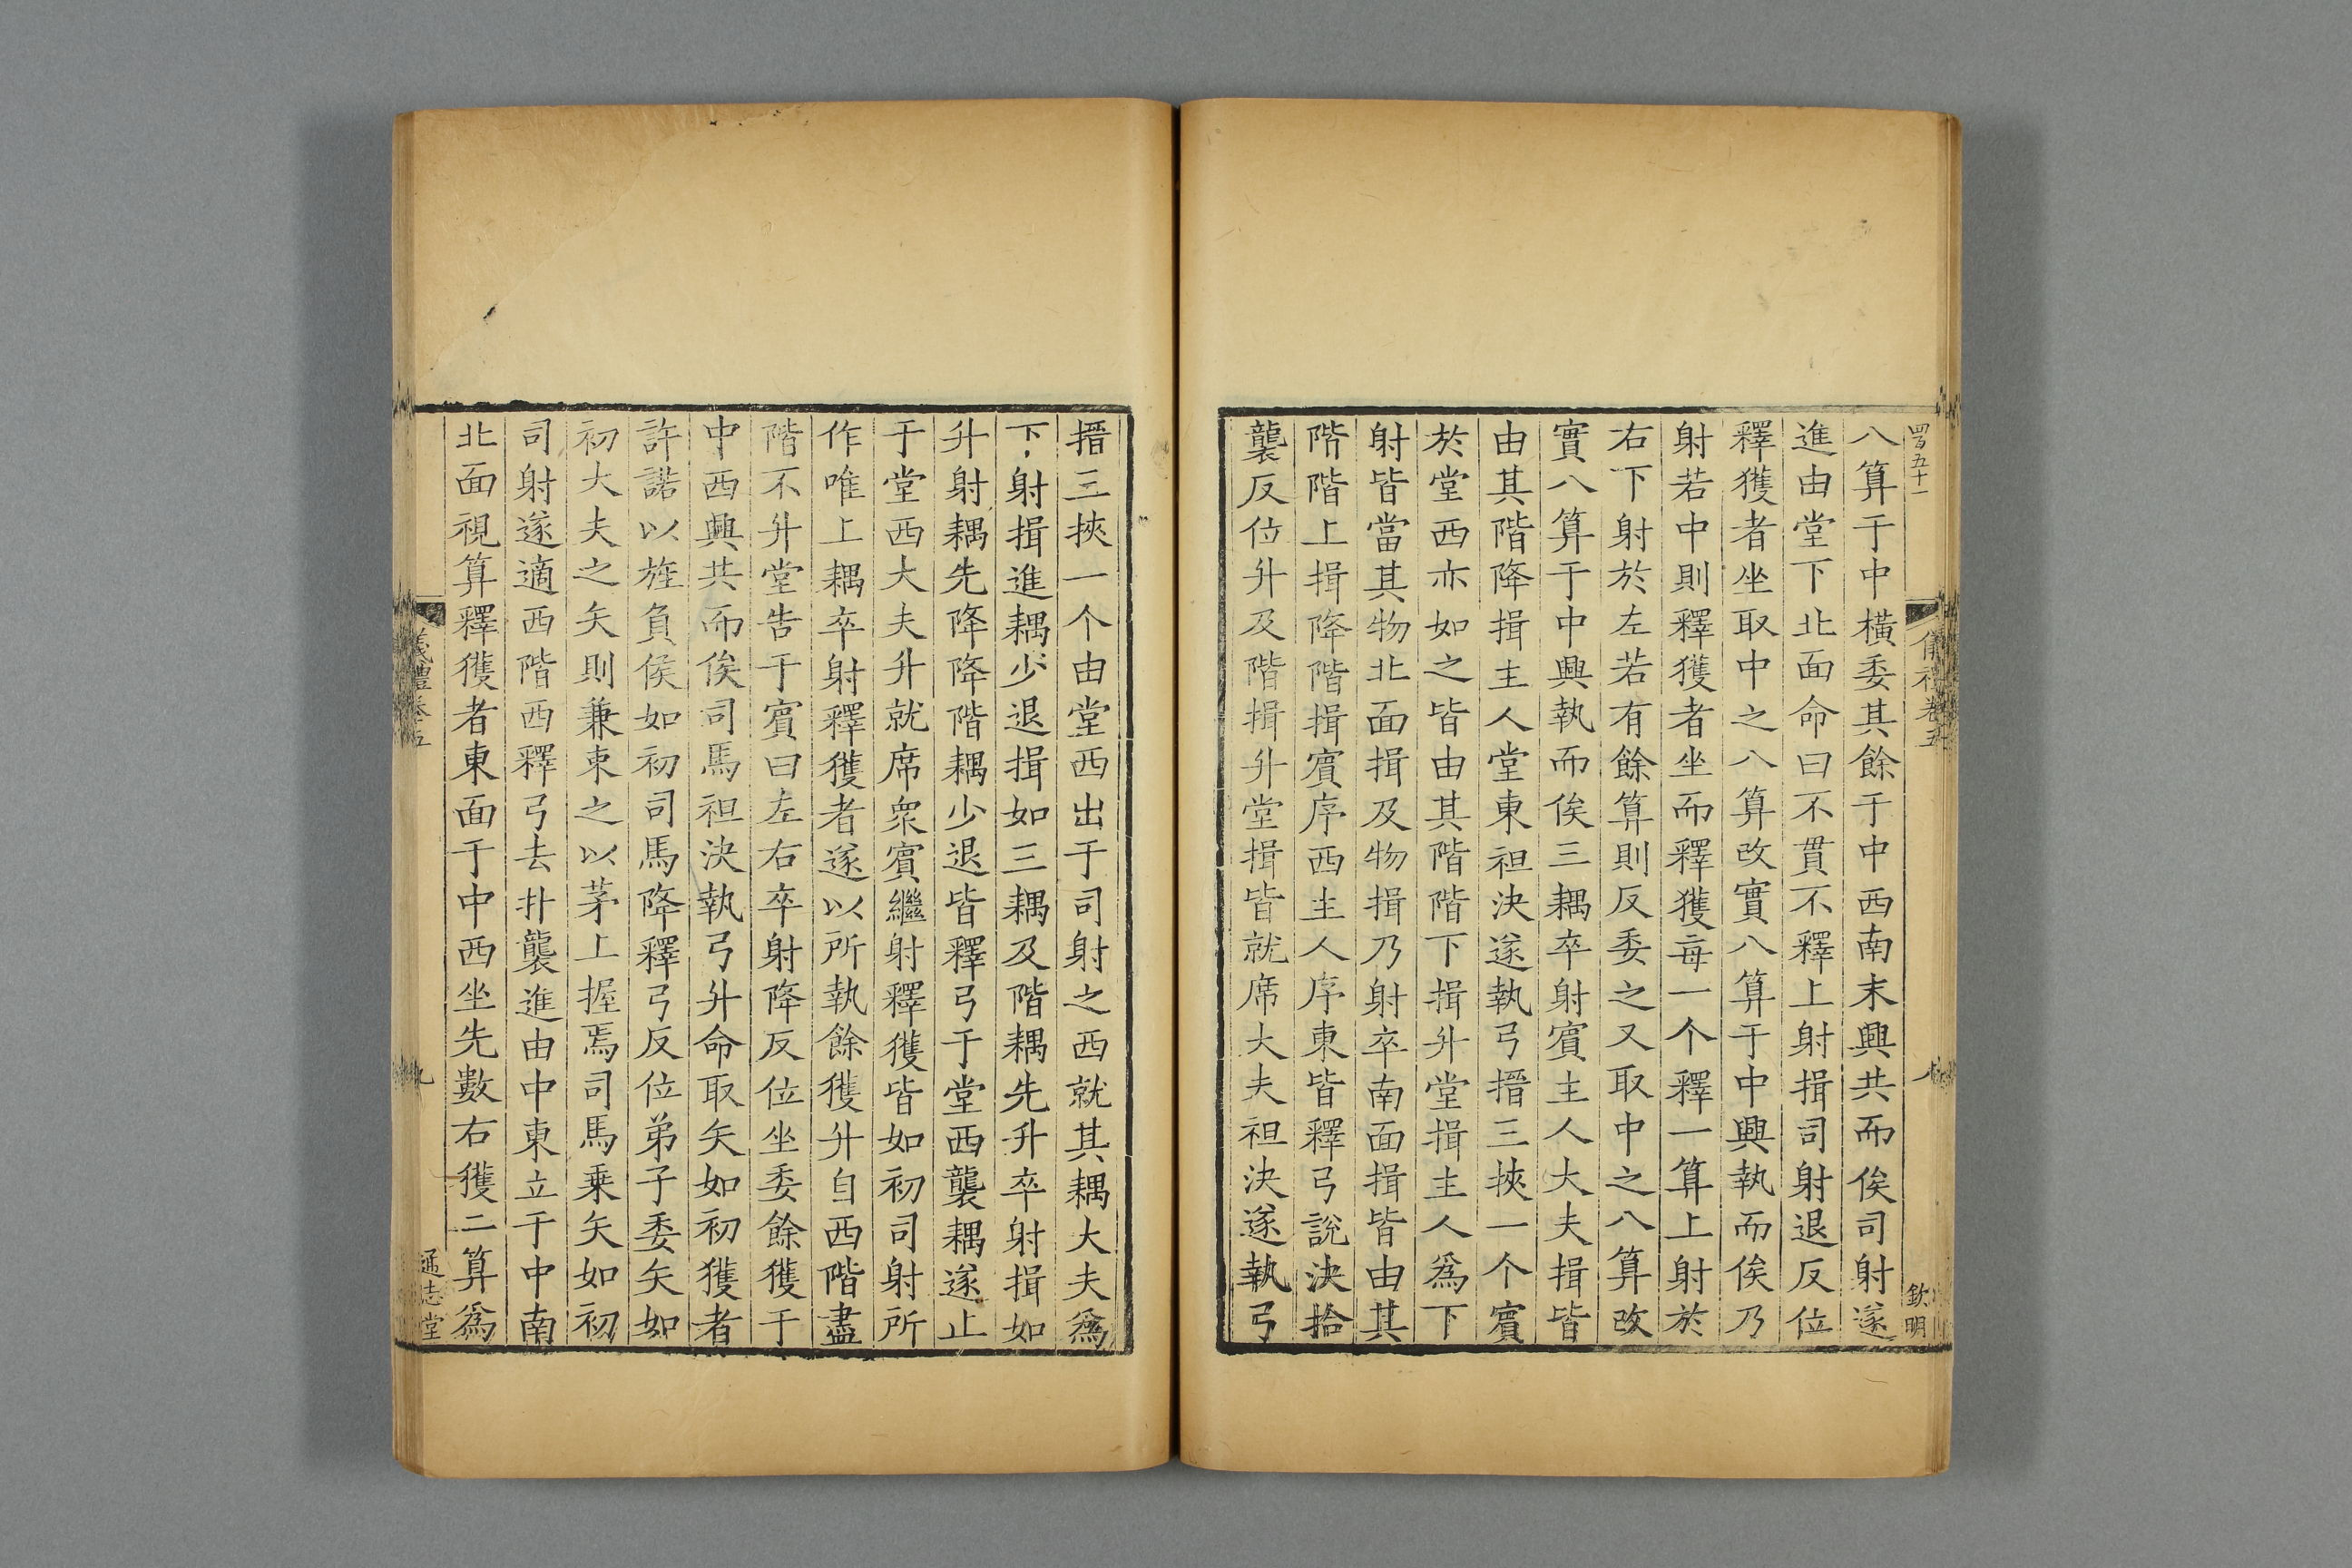 四百五十一
八算于中橫委其餘于中西南末興共而俟司射遂
進由堂下北面命曰不貫不釋上射揖司射退反位
釋獲者坐取中之八算改實八算于中興執而俟乃
射若中則釋獲者坐而釋獲每一个釋一算上射於
右下射於左若有餘算則反委之又取中之八算改
實八算于中興執而俟三耦卒射賓主人大夫揖皆
由其階降揖主人堂東袒決遂執弓搢三挾一个賓
於堂西亦如之皆由其階階下揖升堂揖主人爲下
射皆當其物北面揖及物揖乃射卒南面揖皆由其
階階上揖降階揖賓序西主人序東皆釋弓說決拾
襲反位升及階揖升堂揖皆就席大夫袒決遂執弓
儀禮卷五
八
欽明
搢三挾一个由堂西出于司射之西就其耦大夫爲
下射揖進耦少退揖如三耦及階耦先升卒射揖如
升射耦先降降階耦少退皆釋弓于堂西襲耦遂止
于堂西大夫升就席衆賓繼射釋獲皆如初司射所
作唯上耦卒射釋獲者遂以所執餘獲升自西階盡
階不升堂告于賓曰左右卒射降反位坐委餘獲于
中西興共而俟司馬袒決執弓升命取矢如初獲者
許諾以旌負侯如初司馬降釋弓反位弟子委矢如
初大夫之矢則兼束之以茅上握焉司馬乘矢如初
司射遂適西階西釋弓去扑襲進由中東立于中南
北面視算釋獲者東面于中西坐先數右獲二算爲
儀禮卷五
九
通志堂